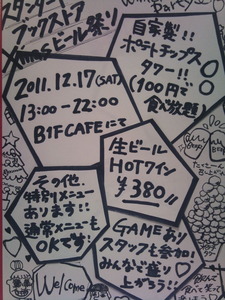 スタンダード
ブックストア
Xmasビール祭り
2011.12.17(SAT)
13:00-22:00
B1F CAFEにて
自家製!!
ポテトチップス
タワー!!
(100円で
食べ放題)
生ビール
HOTワイン
¥380!!
その他
特別メニュー
あります!!
通常メニューも
OKです!
GAMEあり
スタッフも参加!
みんなで盛り
上がろう!!
Welcome